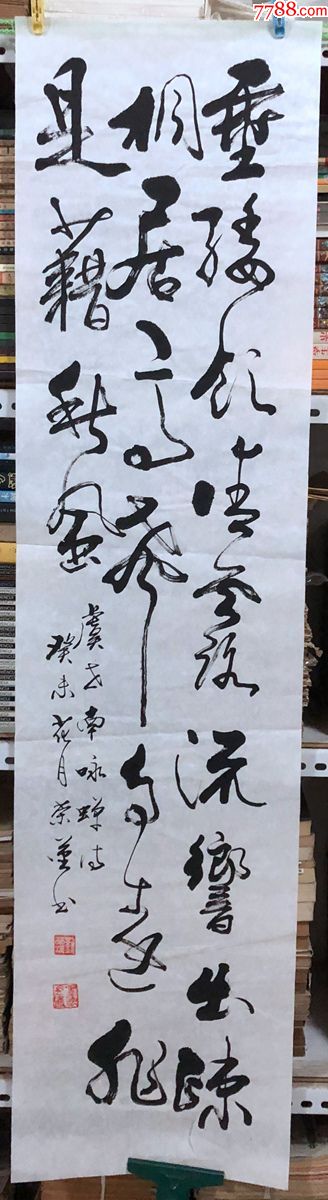 7788.com
垂緌飲清露流響出疎
桐居高聲自遠非
是藉秋風
虞世南咏蟬詩
癸未花月榮書